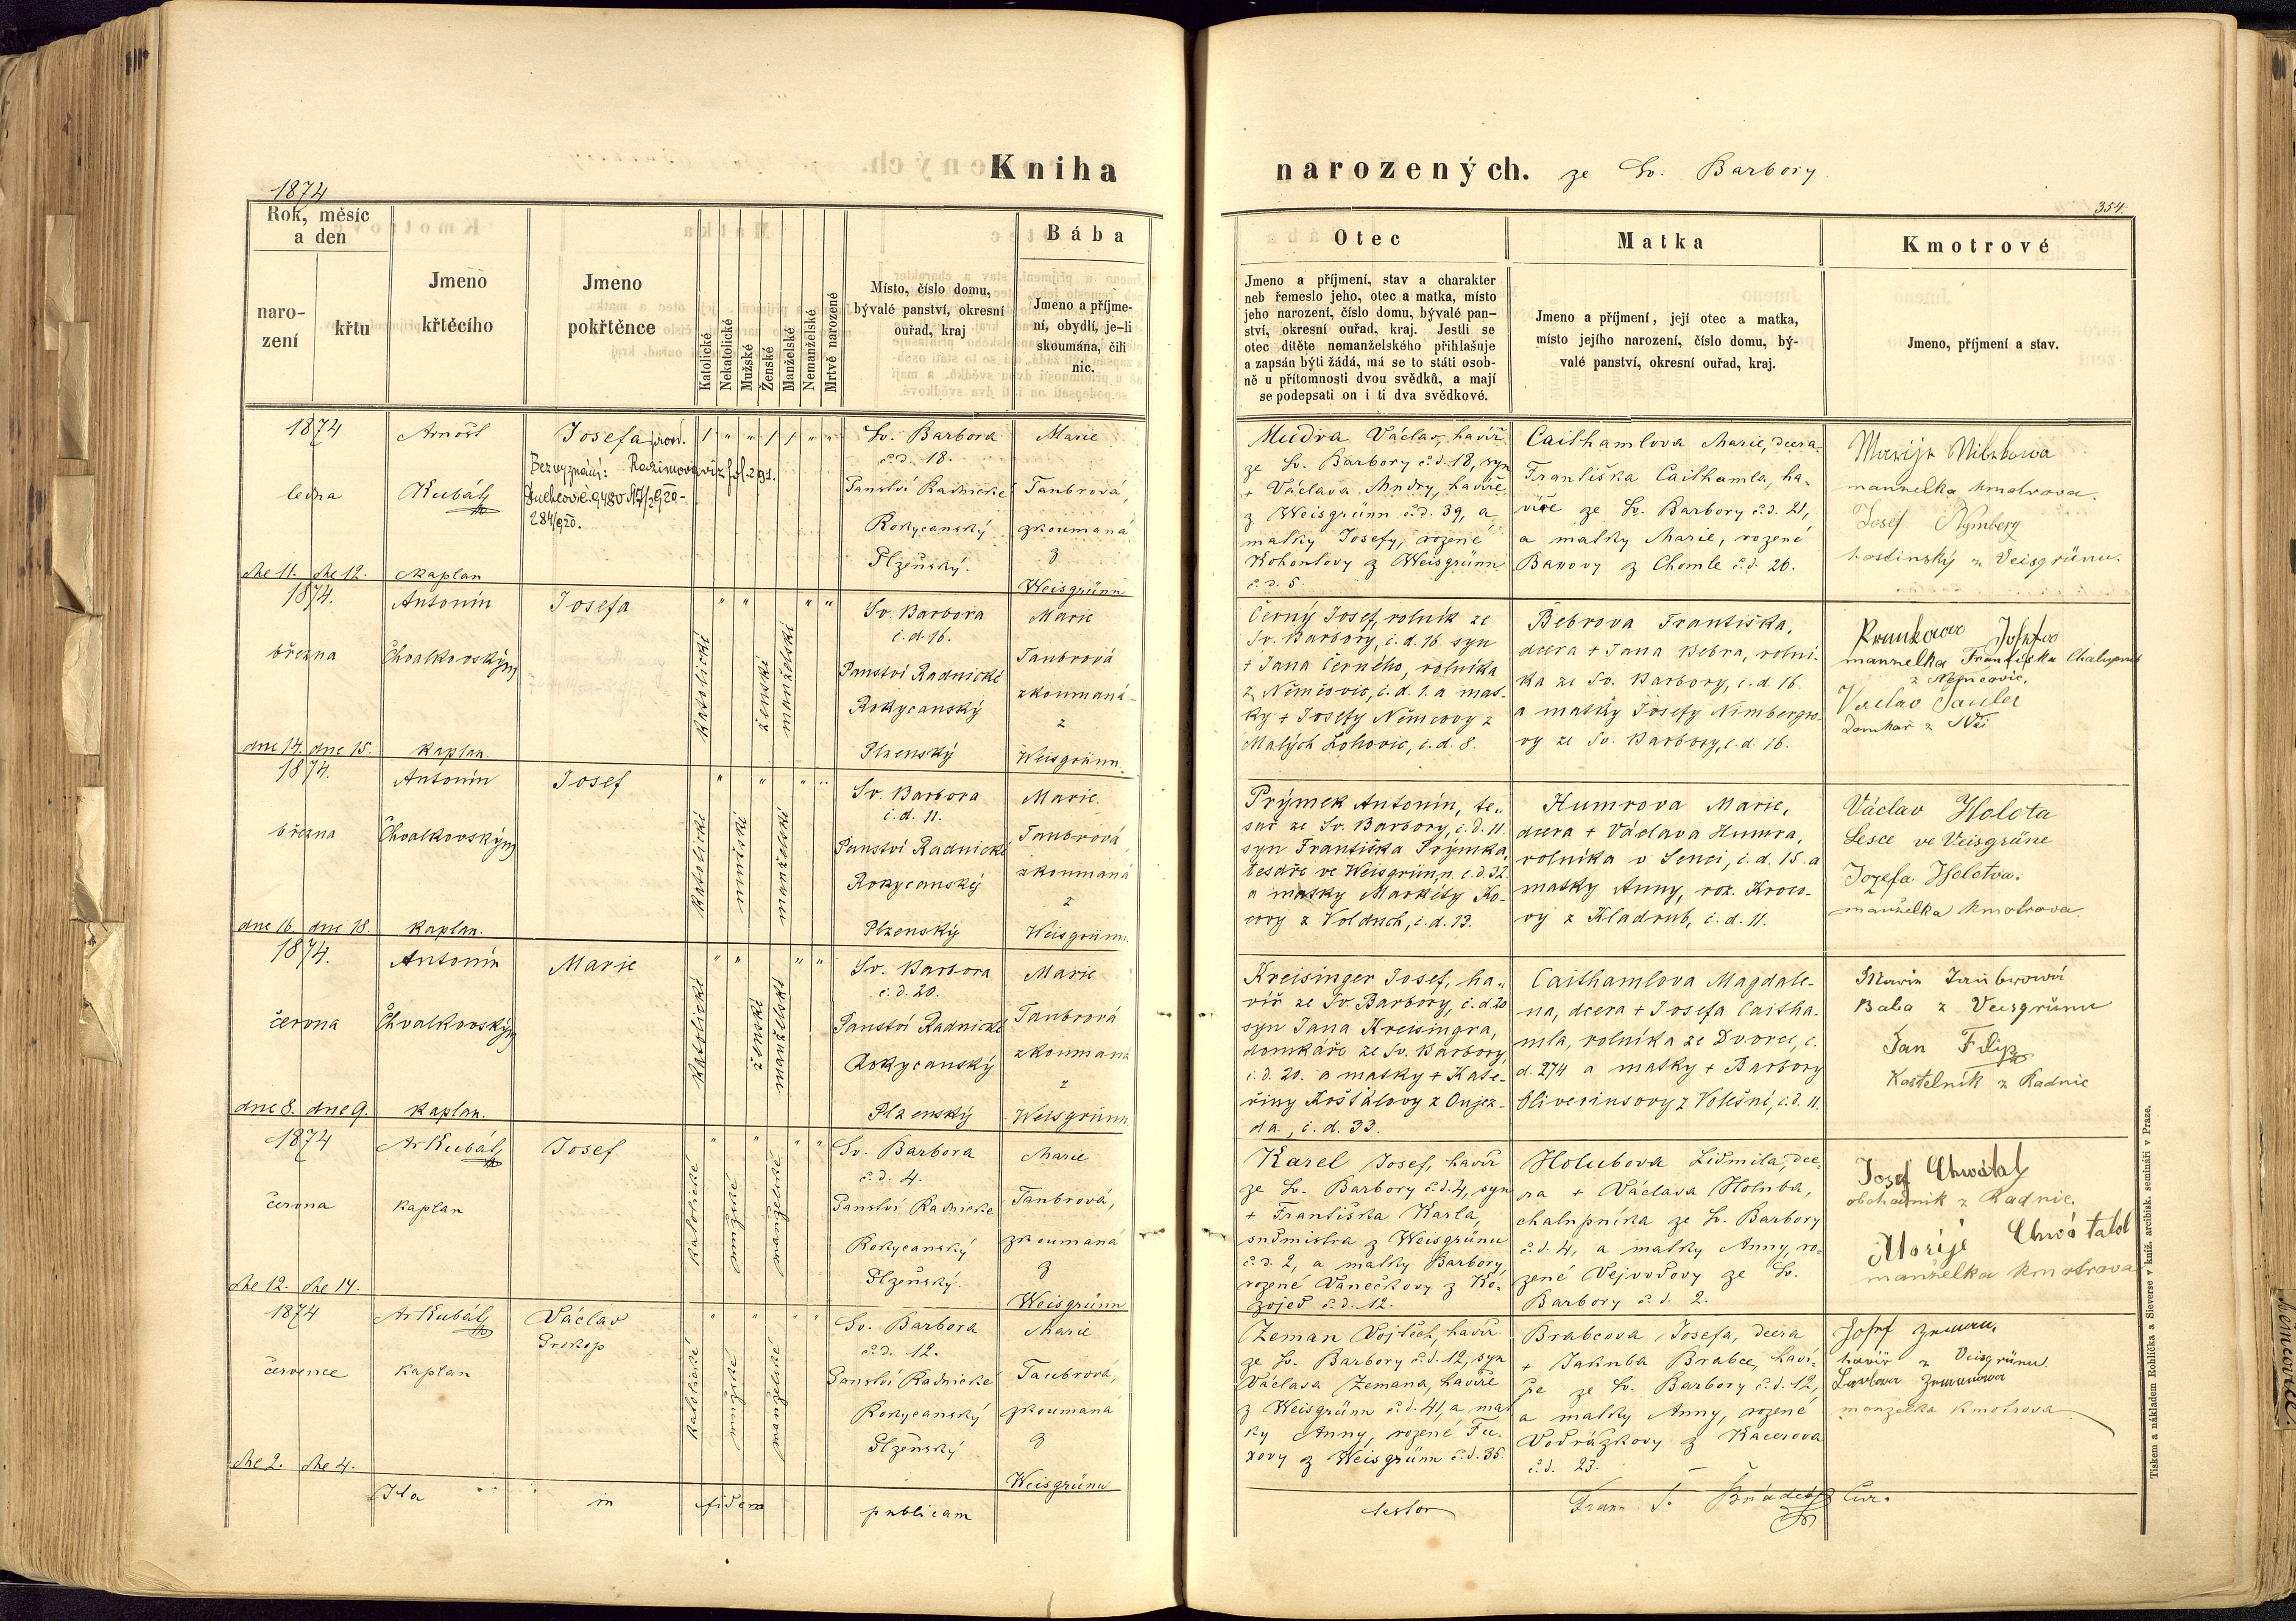 Kniha narozených. ze Sv. Barbory
1874
354.
Rok, měsíc a den
naro-
zení
křtu
Jmeno
křtěcího
Jmeno
pokřtěnce
Katolické
Nekatolické
Mužské
Ženské
Manželské
Nemanželské
Mrtvě narozené
Místo, číslo domu,
bývalé panství, okresní
ouřad, kraj
Bába
Jmeno a příjme-
ní, obydlí, je-li
skoumána, čili
nic.
Otec
Jmeno a příjmení, stav a charakter
neb řemeslo jeho, otec a matka, místo
jeho narození, číslo domu, bývalé pan-
ství, okresní ouřad, kraj. Jestli se
otec dítěte nemanželského přihlašuje
a zapsán býti žádá, má se to státi osob-
ně u přítomnosti dvou svědků, a mají
se podepsati on i ti dva svědkové.
Matka
Jmeno a příjmení, její otec a matka,
místo jejího narození, číslo domu, bý-
valé panství, okresní ouřad, kraj.
Kmotrové
Jmeno, příjmení a stav.
1874
ledna
dne 11. dne 12.
Arnošt
Kubát
kaplan
Josefa
Bez vyznání:
284/920.
Sv. Barbora
č.d. 18.
Panství Radnické
Rokycanský
Plzeňský.
Marie
Taubrová,
zkoumaná
z
Weisgrünn
Mudra Václav, havíř
ze Sv. Barbory č.d. 18, syn
+ Václava Mudry, havíře
z Weisgrünn č.d. 39, a
matky Josefy, rozené
Kohoutovy z Weisgrünn
č.d. 5.
Caithamlova Marie, dcera
Františka Caithamla, ha-
víře ze Sv. Barbory č.d. 21,
a matky Marie, rozené
z Chomle č.d. 26.
Marija
manzelka kmotrova.
Josef Nymberg
hostinský z Veisgrünu.
1874.
března
dne 14. dne 15.
Antonín
Chvalkovský
kaplan
Josefa
katolické
ženské
manželské
Sv. Barbora
č.d. 16.
Panství Radnické
Rokycanský
Plzenský
Marie
Taubrová
zkoumaná
z
Weisgrünn.
Černý Josef, rolník ze
Sv. Barbory, č.d. 16. syn
+ Jana Černého, rolníka
z Němčovic, č.d. 1. a mat-
ky + Josefy Němcovy z
Malých Lohovic, č.d. 8.
Bebrova Františka,
dcera + Jana Bebra, rolní-
ka ze Sv. Barbory, č.d. 16.
a matky Josefy Nimbergro-
vy ze Sv. Barbory, č.d. 16.
Josefa
manzelka Františka
z Nemcovic.
Vaclav
Domkař z
1874.
března
dne 16. dne 18.
Antonín
Chvalkovský
kaplan.
Josef
katolické
mužské
manželské
Sv. Barbora
č.d. 11.
Panství Radnické
Rokycanský
Plzenský
Marie
Taubrová
zkoumaná
z
Weisgrünn.
Prýmek Antonín, te-
sař ze Sv. Barbory, č.d. 11.
syn Františka Prýmka,
tesaře ve Weisgrünn. č.d. 32
a matky Markéty Ko-
z Volduch, č.d. 13.
Humrova Marie,
dcera + Václava Humra,
rolníka v Senci, č.d. 15. a
matky Anny, roz.
vy z Kladrub, č.d. 11.
Václav Holota
ve Veisgrüne
Jozefa Holotva.
manželka kmotrova.
1874.
června
dne 8. dne 9.
Antonín
Chvalkovský
kaplan.
Marie
katolické
ženské
manželské
Sv. Barbora
č.d. 20.
Panství Radnické
Rokycanský
Plzenský
Marie
Taubrová
zkoumaná
z
Weisgrünn.
Kreisinger Josef, ha-
víř ze Sv. Barbory, č.d. 20
syn Jana Kreisingra,
domkáře ze Sv. Barbory,
č.d. 20. a matky + Kate-
řiny Košťálovy z Oujez-
da, č.d. 33.
Caithamlova Magdale-
na, dcera + Josefa Caitha-
mla, rolníka ze Dvorce, č.
d. 274 a matky + Barbory
Oliveriusovy z Volešné, č.d. 11.
Marie Taubrová
Baba z Veisgrünu
Jan Filip
Kostelník z Radnic
1874
června
dne 12. dne 14.
Ar Kubát
kaplan
Josef
katolické
mužské
manželské
Sv. Barbora
č.d. 4.
Panství Radnické
Rokycanský
Plzeňský.
Marie
Taubrová,
zkoumaná
z
Weisgrünn
Karel Josef, havíř
ze Sv. Barbory č.d. 4, syn
+ Františka Karla,
sudmistra z Weisgrünu
č.d. 2, a matky Barbory,
rozené Vanečkovy z Ko-
zojed č.d. 12.
Holubova Lidmila, dce-
ra + Václava Holuba,
chalupníka ze Sv. Barbory
č.d. 4, a matky Anny, ro-
zené Vejvodovy ze Sv.
Barbory č.d. 2.
Josef Chwátal
obchodnik z Radnic.
Marije
manželka kmotrova
1874
července
dne 2. dne 4.
Ar Kubát
kaplan
Václav
Prokop
katolické
mužské
manželské
Sv. Barbora
č.d. 12.
Panství Radnické
Rokycanský
Plzeňský
Marie
Taubrová,
zkoumaná
z
Weisgrünn
Zeman Vojtěch, havíř
ze Sv. Barbory č.d. 12, syn
Václava Zemana, havíře
z Weisgrünn č.d. 41, a mat
ky Anny, rozené Fu-
xovy z Weisgrünn č.d. 35.
Brabcova Josefa, dcera
+ Jakuba Brabce, haví-
ře ze Sv. Barbory č.d. 12,
a matky Anny, rozené
Vodrážkovy z Kacerova
č.d. 23.
Josef Zeman,
havíř z Veisgrünu.
Zemanova
manzelka kmotrova
Ita in fidem publicam testor Fran. Cur.
Tiskem a nákladem Rohlíčka a Sieverse v kníž. arcibisk. semináři v Praze.
Němčovice